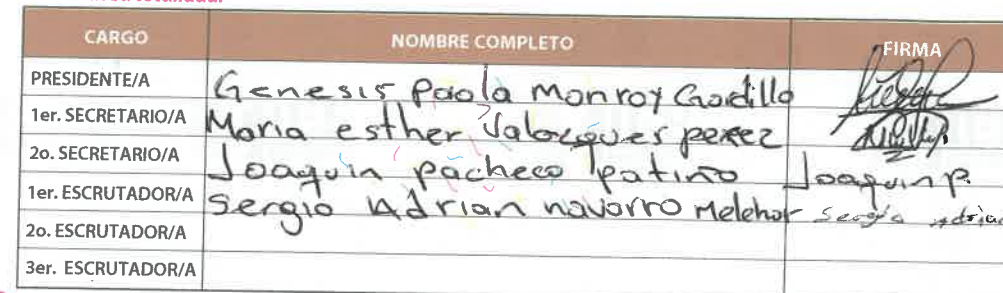 CARGO NOMBRE COMPLETO FIRMA
PRESIDENTE/A Genesis Paola Monroy Gordillo
1er. SECRETARIO/A Maria esther Valazques perez
2o. SECRETARIO/A Joaquin pacheco patiño Joaquin P.
1er. ESCRUTADOR/A Sergio Adrian navarro Melchor Sergio Adrian
2o. ESCRUTADOR/A
3er. ESCRUTADOR/A